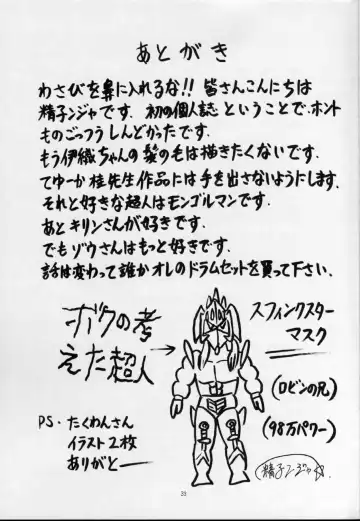 あとがき
わさびを鼻に入れるな!! 皆さんこんにちは
精子ンジャです. 初の個人誌ということで、ホント
ものごっつうしんどかったです.
もう伊織ちゃんの髪の毛は描きたくないです.
てゆーか桂先生作品には手を出さないようにします.
それと好きな超人はモンゴルマンです.
あとキリンさんが好きです.
でもゾウさんはもっと好きです.
話は変わって誰かオレのドラムセットを買って下さい.
ボクの考
えた超人
→
スフィンクスター
マスク
(ロビンの兄)
(98万パワー)
PS・たくわんさん
イラスト2枚
ありがとー
精子ンジャ
33